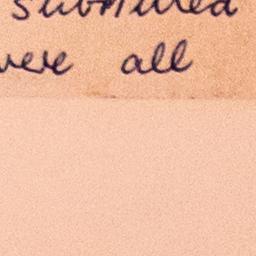 submitted
were all